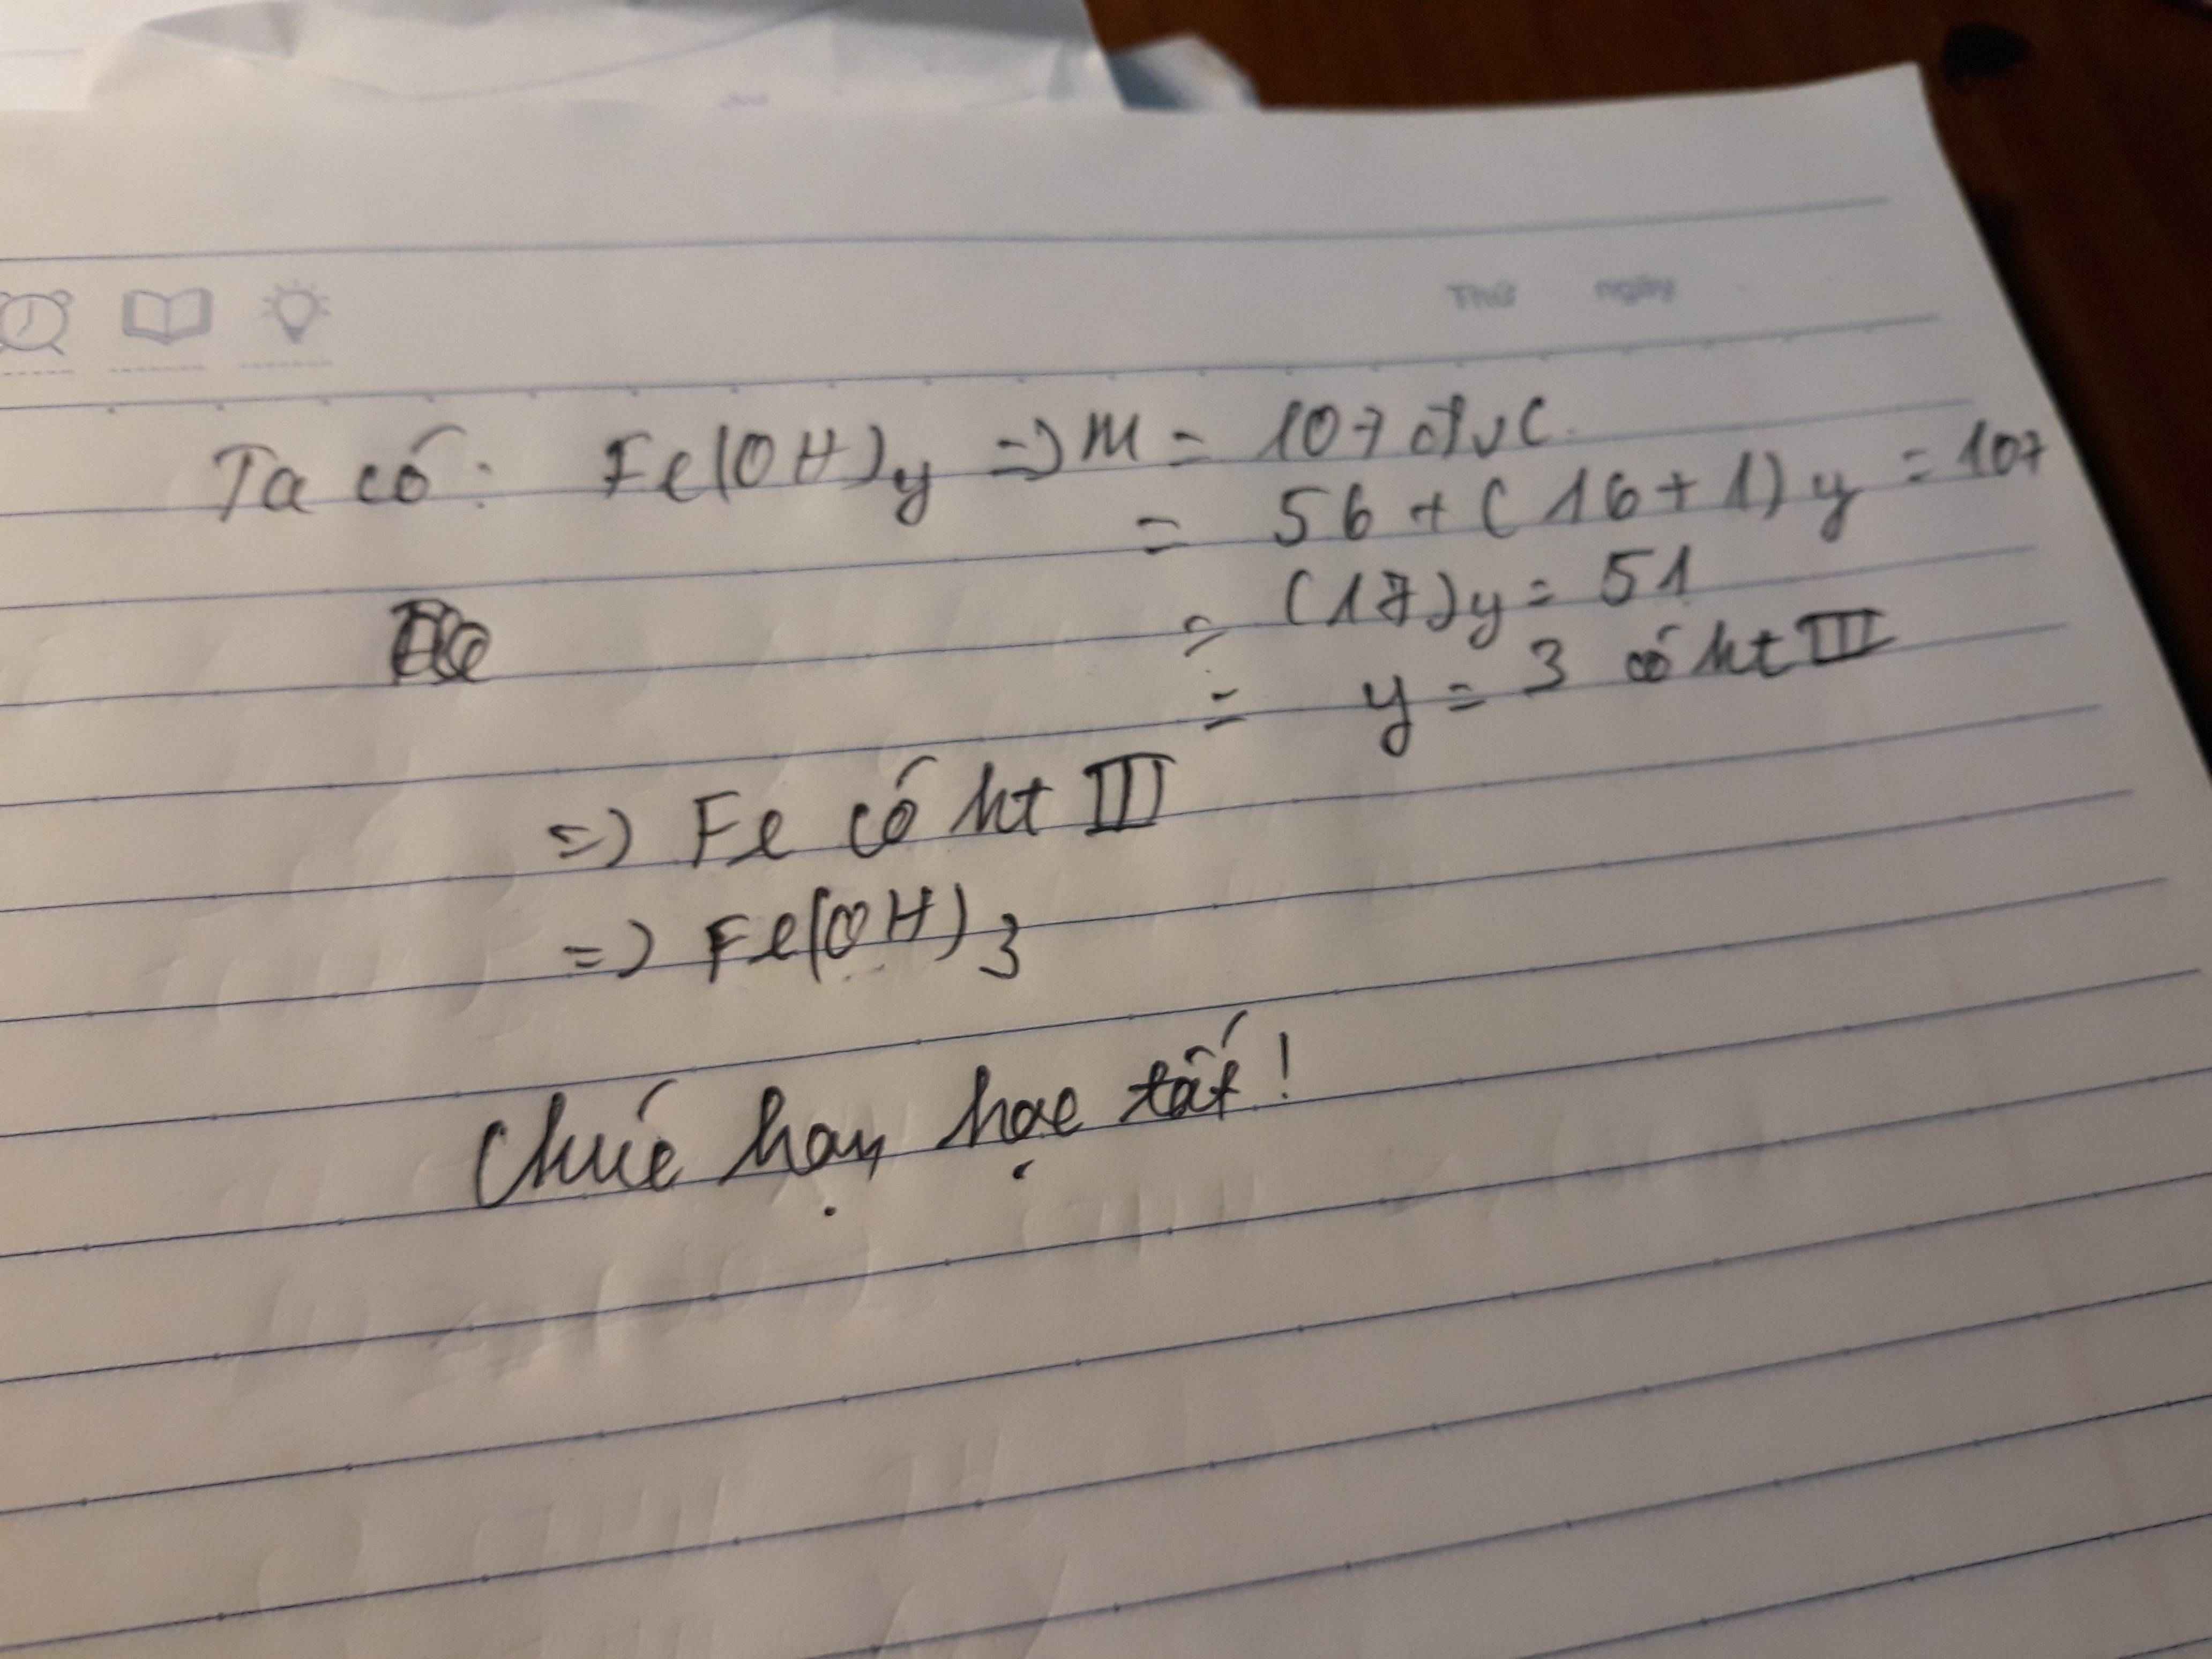 Thứ ngày
Ta có: Fe(OH)y => M = 107 đvC.
= 56 + (16+1)y = 107
= (17)y = 51
= y = 3 có ht III
=> Fe có ht III
=> Fe(OH)3
Chúc bạn học tốt!